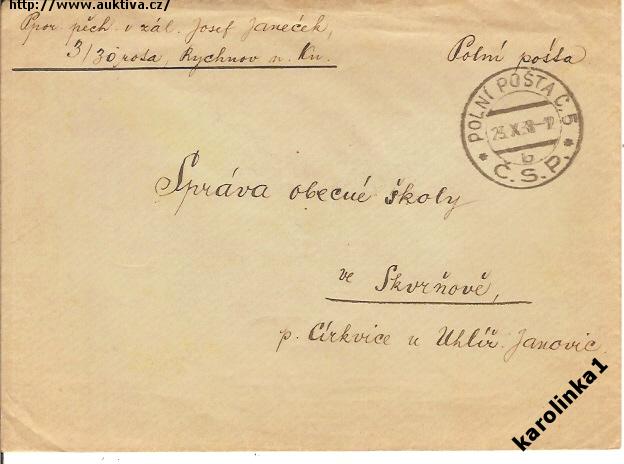 http://www.auktiva.cz/
Ppor. pěch. v zál. Josef Janeček,
3/30, rota, Rychnov n. Kn.
Polní pošta
POLNÍ POŠTA Č. 5
23.X.38-12
b
* Č.S.P. *
Správa obecné školy
ve Skvrňově,
p. Církvice u Uhlíř. Janovic.
karolinka1